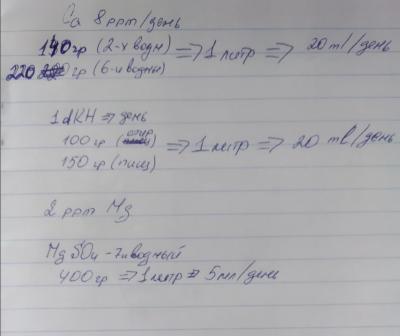 Ca 8 ppm/день
140гр (2-х водн) => 1 литр => 20 ml/день
220 гр (6-и водны)
1 dKH => день
100 гр
150 гр (пищ)
=> 1 литр => 20 ml/день
2 ppm Mg
MgSO4 - 7и водный
400 гр => 1 литр => 5мл/день